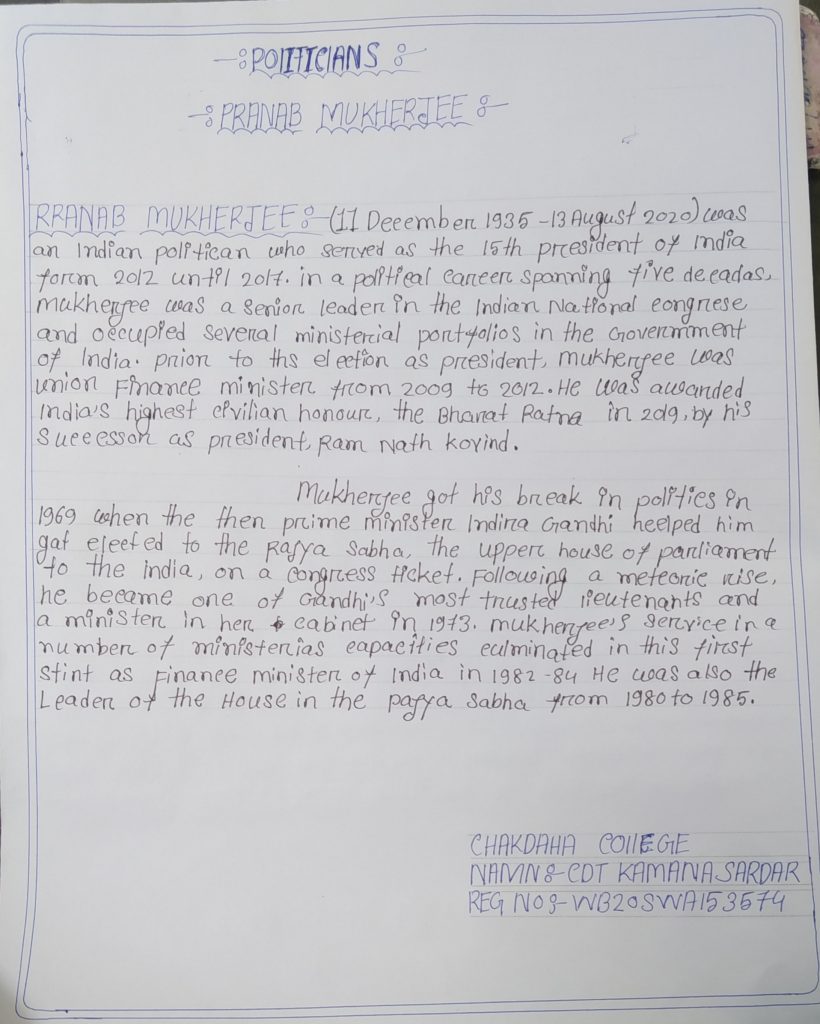 -:POLITICIANS:-
-:PRANAB MUKHERJEE:-
RRANAB MUKHERJEE:- (11 December 1935 - 13 August 2020) was
an Indian politican who served as the 15th president of India
form 2012 until 2017. in a political career spanning five decadas,
mukherjee was a senior leader in the Indian National congriese
and occupied several ministercial portfolios in the Governmment
of India. prior to ths election as president, mukherjee was
union Finance minister from 2009 to 2012. He was awarded
India's highest civilian honour, the Bharat Ratna in 2019, by his
Successor as president, Ram Nath Kovind.
Mukherjee got his break in politics in
1969 when the then prime minister Indira Gandhi heelped him
gat elected to the Rajya Sabha, the upper house of parliament
to the india, on a congress ticket. Following a meteoric rise,
he became one of Gandhi's most trusted lieutenants and
a minister in her cabinet in 1973. mukherjee's service in a
number of ministerias capacities culminated in this first
stint as Finance minister of India in 1982-84 He was also the
Leader of the House in the pajya Sabha from 1980 to 1985.
CHAKDAHA COllEGE
NAMN:- CDT KAMANA SARDAR
REG NO:- WB20SWA153574